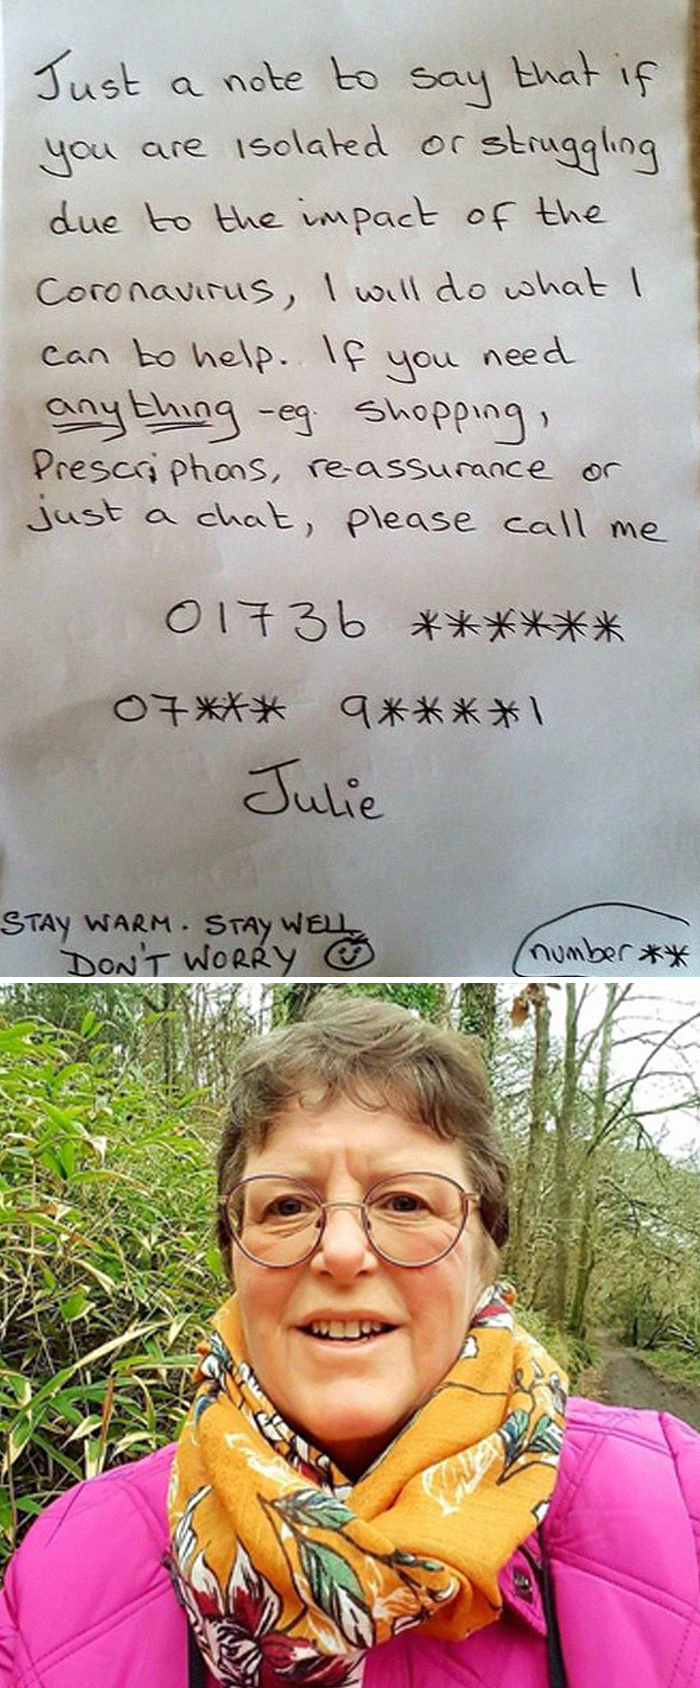 Just a note to say that if
you are isolated or struggling
due to the impact of the
Coronavirus, I will do what I
can to help. If you need
anything - eg. shopping,
Prescriptions, re-assurance or
just a chat, please call me
01736 ******
07*** 9****1
Julie
STAY WARM. STAY WELL
DON'T WORRY
number **